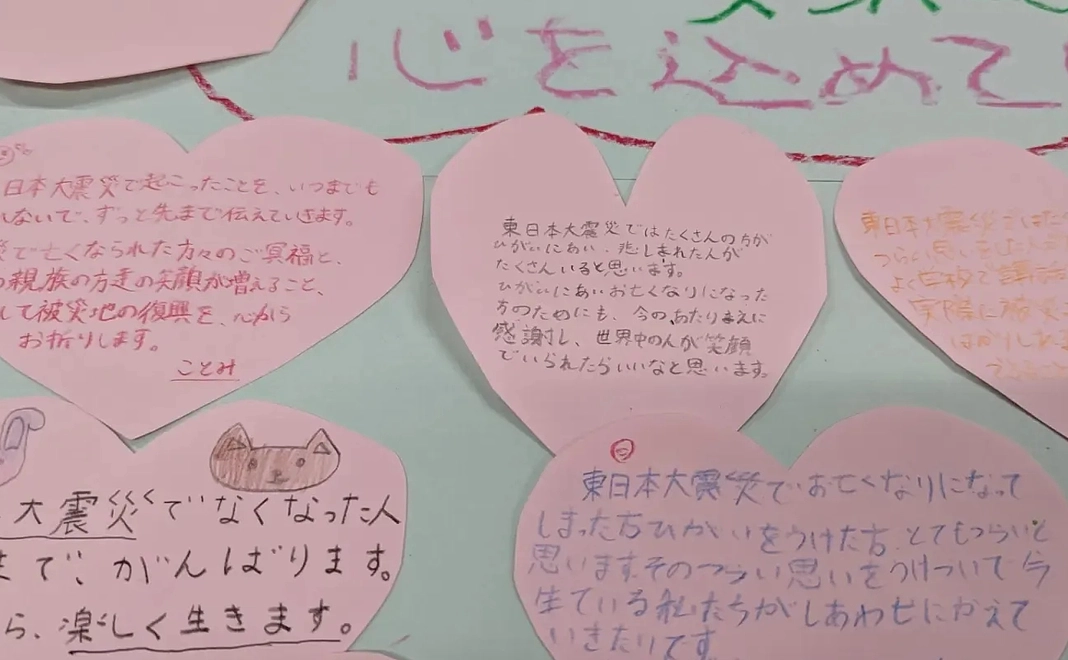 心を込めて
日本大震災で起こったことを、いつまでも
れないで、ずっと先まで伝えていきます。
で亡くなられた方々のご冥福と、
親族の方達の笑顔が増えること、
して被災地の復興を、心から
お祈りします。
ことみ
東日本大震災ではたくさんの方が
ひがいにあい、悲しまれた人が
たくさんいると思います。
ひがいにあいお亡くなりになった
方のためにも、今のあたりまえに
感謝し、世界中の人が笑顔
でいられたらいいなと思います。
東日本大震災では
つらい思いをした
よく学校で
実際に被災
はかりしれ
大震災でなくなった人
まで、がんばります。
ら、楽しく生きます。
東日本大震災でお亡くなりになって
しまった方ひがいをうけた方、とてもつらいと
思います。そのつらい思いをうけついで今
生ている私たちがしあわせにかえて
いきたいです